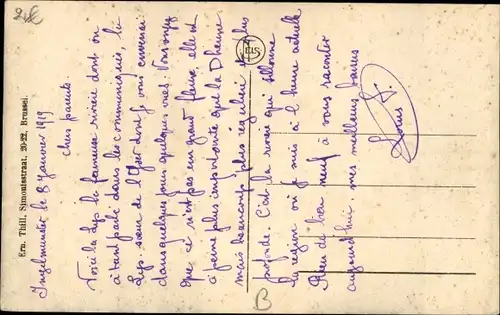 Ern. Thill, Simonisstraat, 20-22, Brussel.
NELS
Ingelmunster le 8 Janvier 1919
Chers parents
Voici la Lys la fameuse rivière dont on
a tant parlé dans les communiqués, la
Lys sœur de l'Yser dont je vous enverrai
dans quelques jours quelques vues. Vous voyez
que ce n'est pas un grand fleuve elle est
à peine plus importante que la Dheune
mais beaucoup plus régulière et plus
profonde. C'est la rivière qui sillonne
la région où je suis à l'heure actuelle
Rien de bien neuf à vous raconter
aujourd'hui. mes meilleurs baisers
Louis
B